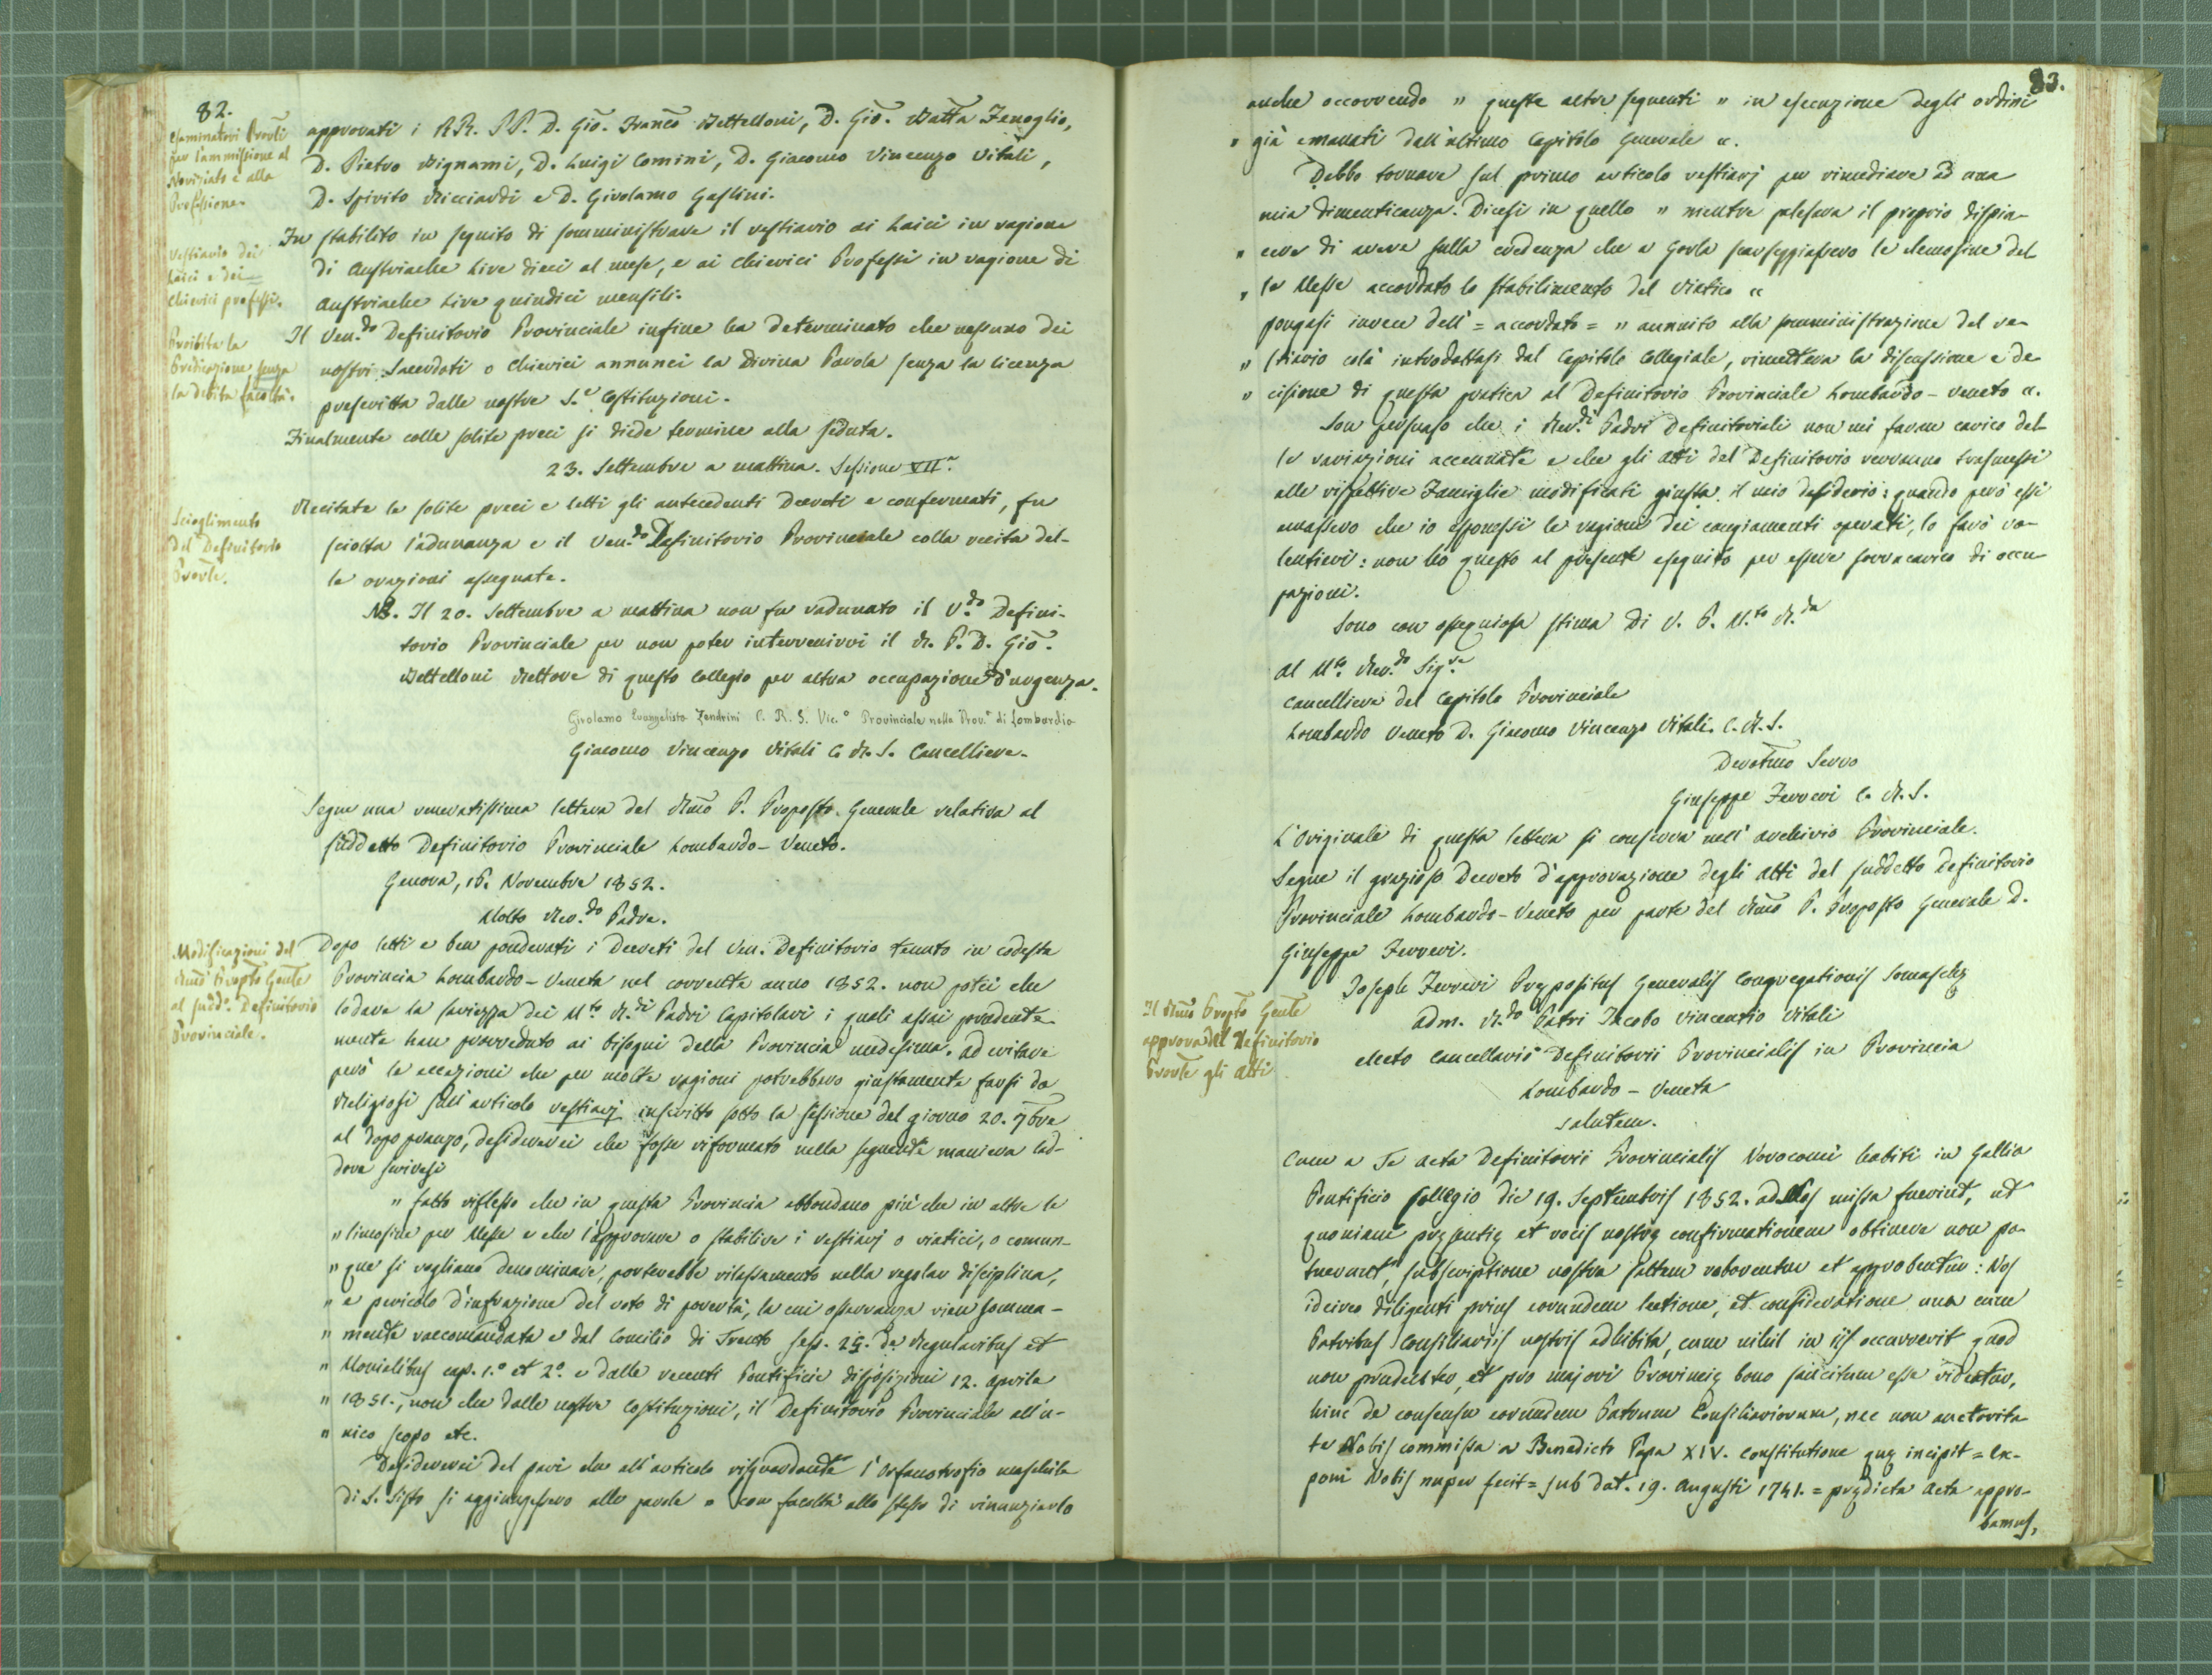 82.
Esaminatori Provli
per l'ammissione al
Noviziato e alla
Professione.
approvati i RR. PP. D. Gio. Franco Bettelloni, D. Gio. Batta Fenoglio,
D. Pietro Bignami, D. Luigi Comini, D. Giacomo Vincenzo Vitali,
D. Spirito Ricciardi e D. Girolamo Gaslini.
Vestiario dei
Laici e dei
Chierici professi.
Fu stabilito in seguito di somministrare il vestiario ai Laici in ragione
di Austriache Lire dieci al mese, e ai Chierici Professi in ragione di
Austriache Lire quindici mensili.
Proibita la
Predicazione senza
la debita facoltà.
Il Ven.do Definitorio Provinciale infine ha determinato che nessuno dei
nostri Sacerdoti o Chierici annunci la Divina Parola senza la licenza
prescritta dalle nostre S.e Costituzioni.
Finalmente colle solite preci si diede termine alla seduta.
23. Settembre a mattina. Sessione VII.a
Scioglimento
del Definitorio
Provle.
Recitate le solite preci e letti gli antecedenti Decreti e confermati, fu
sciolta l'adunanza e il Ven.do Definitorio Provinciale colla recita del-
le orazioni assegnate.
NB. Il 20. Settembre a mattina non fu radunato il V.do Defini-
torio Provinciale per non poter intervenirvi il R. P. D. Gio.
Bettelloni Rettore di questo Collegio per altra occupazione d'urgenza.
Girolamo Evangelista Zendrini C. R. S. Vic.o Provinciale nella Prov.a di Lombardia
Giacomo Vincenzo Vitali C. R. S. Cancelliere.
Segue una veneratissima lettera del Rmo P. Preposto Generale relativa al
suddetto Definitorio Provinciale Lombardo-Veneto.
Genova, 16. Novembre 1852.
Molto Rev.do Padre.
Modificazioni del
Rmo Prepto Genle
al sudd.o Definitorio
Provinciale.
Dopo letti e ben ponderati i Decreti del Ven. Definitorio tenuto in codesta
Provincia Lombardo-Veneta nel corrente anno 1852. non potei che
lodare la saviezza dei M.to R.di Padri Capitolari i quali assai prudente
mente han provveduto ai bisogni della Provincia medesima. Ad evitare
però le eccezioni che per molte ragioni potrebbero giustamente farsi da
Religiosi sull'articolo vestiarj inscritto sotto la sessione del giorno 20. 7bre
al dopo pranzo, desidererei che fosse riformato nella seguente maniera lad-
dove scrivesi
" fatto riflesso che in questa Provincia abbondano più che in altre le
" limosine per Messe e che l'approvare o stabilire i vestiarj o viatici, o comun-
" que si vogliano denominare, porterebbe rilassamento nella regolar disciplina,
" e pericolo d'infrazione del voto di povertà, la cui osservanza vien somma-
" mente raccomandata e dal Concilio di Trento sess. 25. de Regularibus et
" Monialibus cap. 1.o et 2.o e dalle recenti Pontificie disposizioni 12. Aprile
" 1851., non che dalle nostre Costituzioni, il Definitorio Provinciale all'u-
" nico scopo etc.
Desidererei del pari che all'articolo risguardante l'Orfanotrofio maschile
di S. Sisto si aggiungessero alle parole " con facoltà allo stesso di rinunziarlo
83.
anche occorrendo " queste altre seguenti " in esecuzione degli ordini
" già emanati dall'ultimo Capitolo Generale ".
Debbo tornare sul primo articolo vestiarj per rimediare ad una
mia dimenticanza. Dicesi in quello " mentre palesava il proprio dispia-
" cere di avere sulla credenza che a Gorla scarseggiassero le elemosine del
" le Messe accordato lo stabilimento del Viatico "
pongasi invece dell' = accordato = " annuito alla somministrazione del ve-
" stiario colà introdottasi dal Capitolo Collegiale, rimetteva la discussione e de
" cisione di questa pratica al Definitorio Provinciale Lombardo-Veneto ".
Son persuaso che i Rev.di Padri Definitoriali non mi faran carico del
le variazioni accennate e che gli Atti del Definitorio verranno trasmessi
alle rispettive Famiglie modificati giusta il mio desiderio: quando però essi
amassero che io esponessi le ragioni dei cangiamenti operati, lo farò vo-
lentieri: non ho questo al presente eseguito per essere sovracarico di occu
pazioni.
Sono con ossequiosa stima di V. P. M.to R.da
Al M.to Rev.do Sig.re
Cancelliere del Capitolo Provinciale
Lombardo Veneto D. Giacomo Vincenzo Vitali. C. R. S.
Devotmo Servo
Giuseppe Ferreri C. R. S.
L'Originale di questa lettera si conserva nell'archivio Provinciale.
Segue il grazioso Decreto d'approvazione degli Atti del suddetto Definitorio
Provinciale Lombardo-Veneto per parte del Rmo P. Preposto Generale D.
Giuseppe Ferreri.
Il Rmo Prepto Genle
approva del Definitorio
Provle gli Atti
Joseph Ferreri Prępositus Generalis Congregationis Somaschę
Adm. R.do Patri Jacobo Vincentio Vitali
electo Cancellario Definitorii Provincialis in Provincia
Lombardo-Veneta
Salutem.
Cum a Te Acta Definitorii Provincialis Novocomi habiti in Gallio
Pontificio Collegio die 19. Septembris 1852. ad Nos missa fuerint, ut
quoniam pręsentię et vocis nostrę confirmationem obtinere non po-
tuerunt, subscriptione nostra saltem roborentur et approbentur: Nos
idcirco diligenti prius eorundem lectione, et consideratione una cum
Patribus Consiliariis nostris adhibita, cum nihil in iis occurrerit quod
non prudenter, et pro majori Provincię bono sancitum esse videatur,
hinc de consensu eorundem Patrum Consiliariorum, nec non auctorita
te Nobis commissa a Benedicto Papa XIV. Constitutione quę incipit = Ex-
poni Nobis nuper fecit = sub dat. 19. Augusti 1741. = prędicta Acta appro-
bamus,